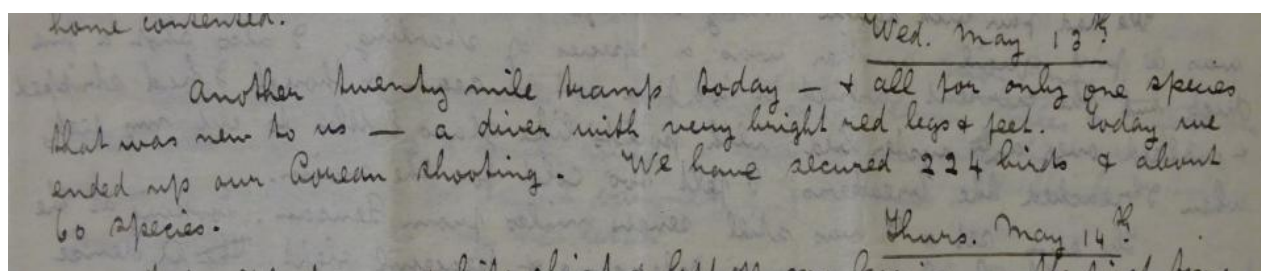 home consented.
Wed. May 13th
Another twenty mile tramp today — & all for only one species
that was new to us — a diver with very bright red legs & feet. Today we
ended up our Corean shooting. We have secured 224 birds & about
60 species.
Thurs. May 14th